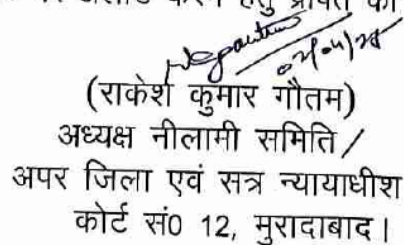 हेतु प्रेषित की
(राकेश कुमार गौतम)
अध्यक्ष नीलामी समिति /
अपर जिला एवं सत्र न्यायाधीश
कोर्ट सं0 12, मुरादाबाद।